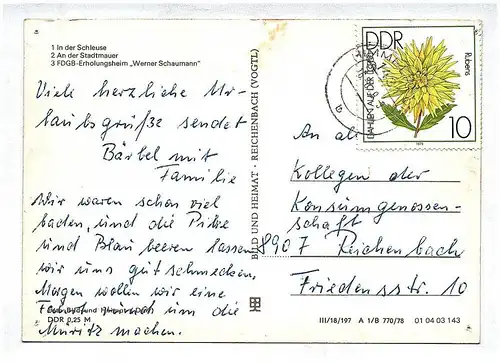 1 In der Schleuse
2 An der Stadtmauer
3 FDGB-Erholungsheim „Werner Schaumann"
Viele herzliche Ur-
laubsgrüße sendet
Bärbel mit
Familie
Wir waren schon viel
baden, und die Pilze
und Blau beeren lassen
wir uns gut schmecken.
Morgen wollen wir eine
um die
Müritz machen.
DDR 0,25 M
BILD UND HEIMAT · REICHENBACH (VOGTL)
DDR
Rubens
DAHLIEN AUF DER
10
1979
An alle
Kollegen der
Konsumgenossen-
schaft
8907 Reichenbach
Friedensstr. 10
III/18/197 A 1/B 770/78 01 04 03 143